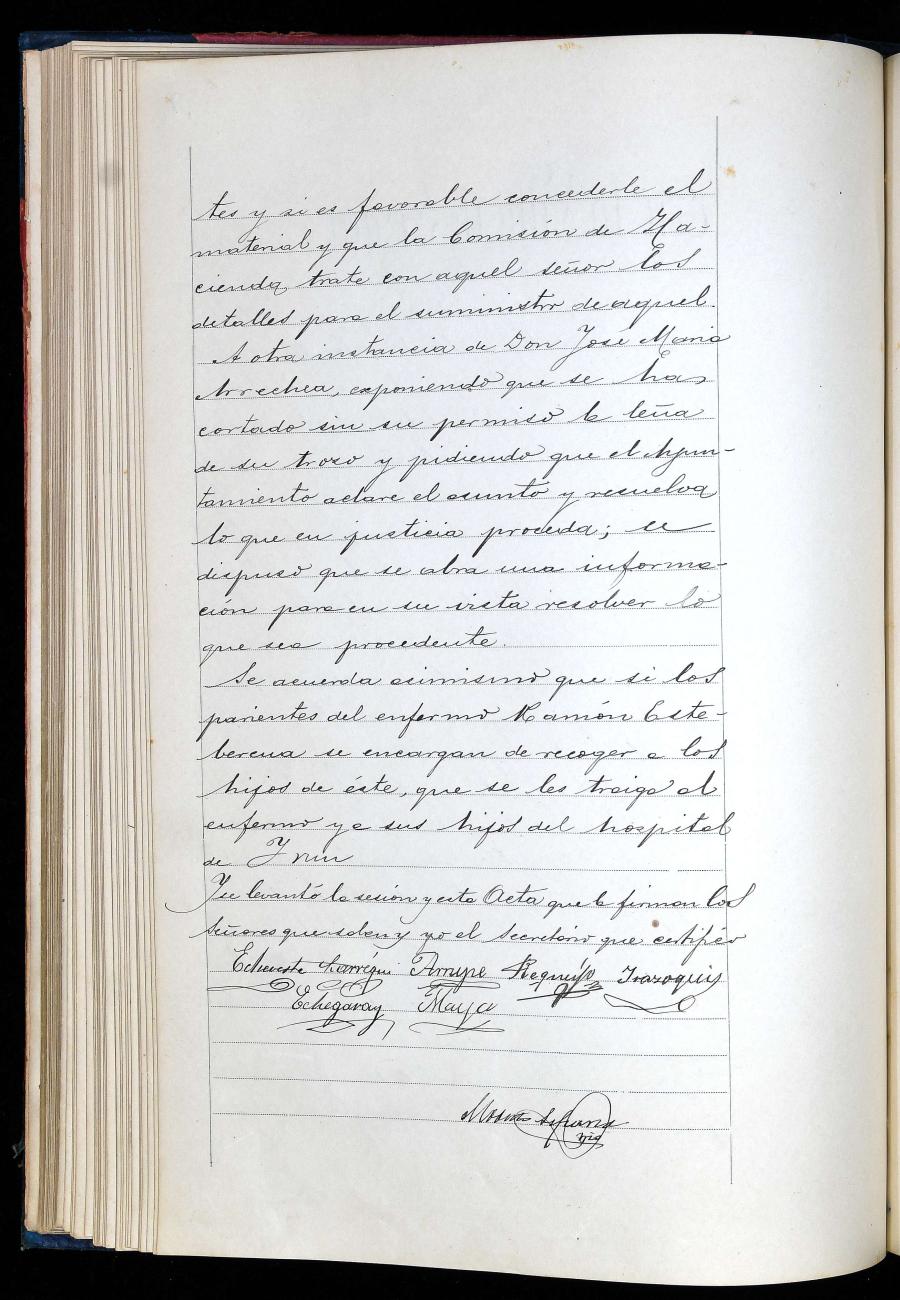 tes y si es favorable concederle el
material y que la Comisión de Ha-
cienda, trate con aquel señor los
detalles para el suministro de aquel.
A otra instancia de Don José Maria
Arrechea, exponiendo que se ha
cortado sin su permiso la leña
de su trozo y pidiendo que el Ayun-
tamiento aclare el asunto y resuelva
lo que en justicia proceda; se
dispuso que se abra una informa-
ción para en su vista resolver lo
que sea procedente.
Se acuerda asimismo que si los
parientes del enfermo Ramón Este-
berena se encargan de recoger a los
hijos de éste, que se les traiga al
enfermo y a sus hijos del hospital
de Irun
Y se levantó la sesión y esta Acta que la firman los
Señores que saben y yo el Secretario que certifico
Echeveste Larrégui Arrupe Requejo Irazoqui
Echegaray Maya